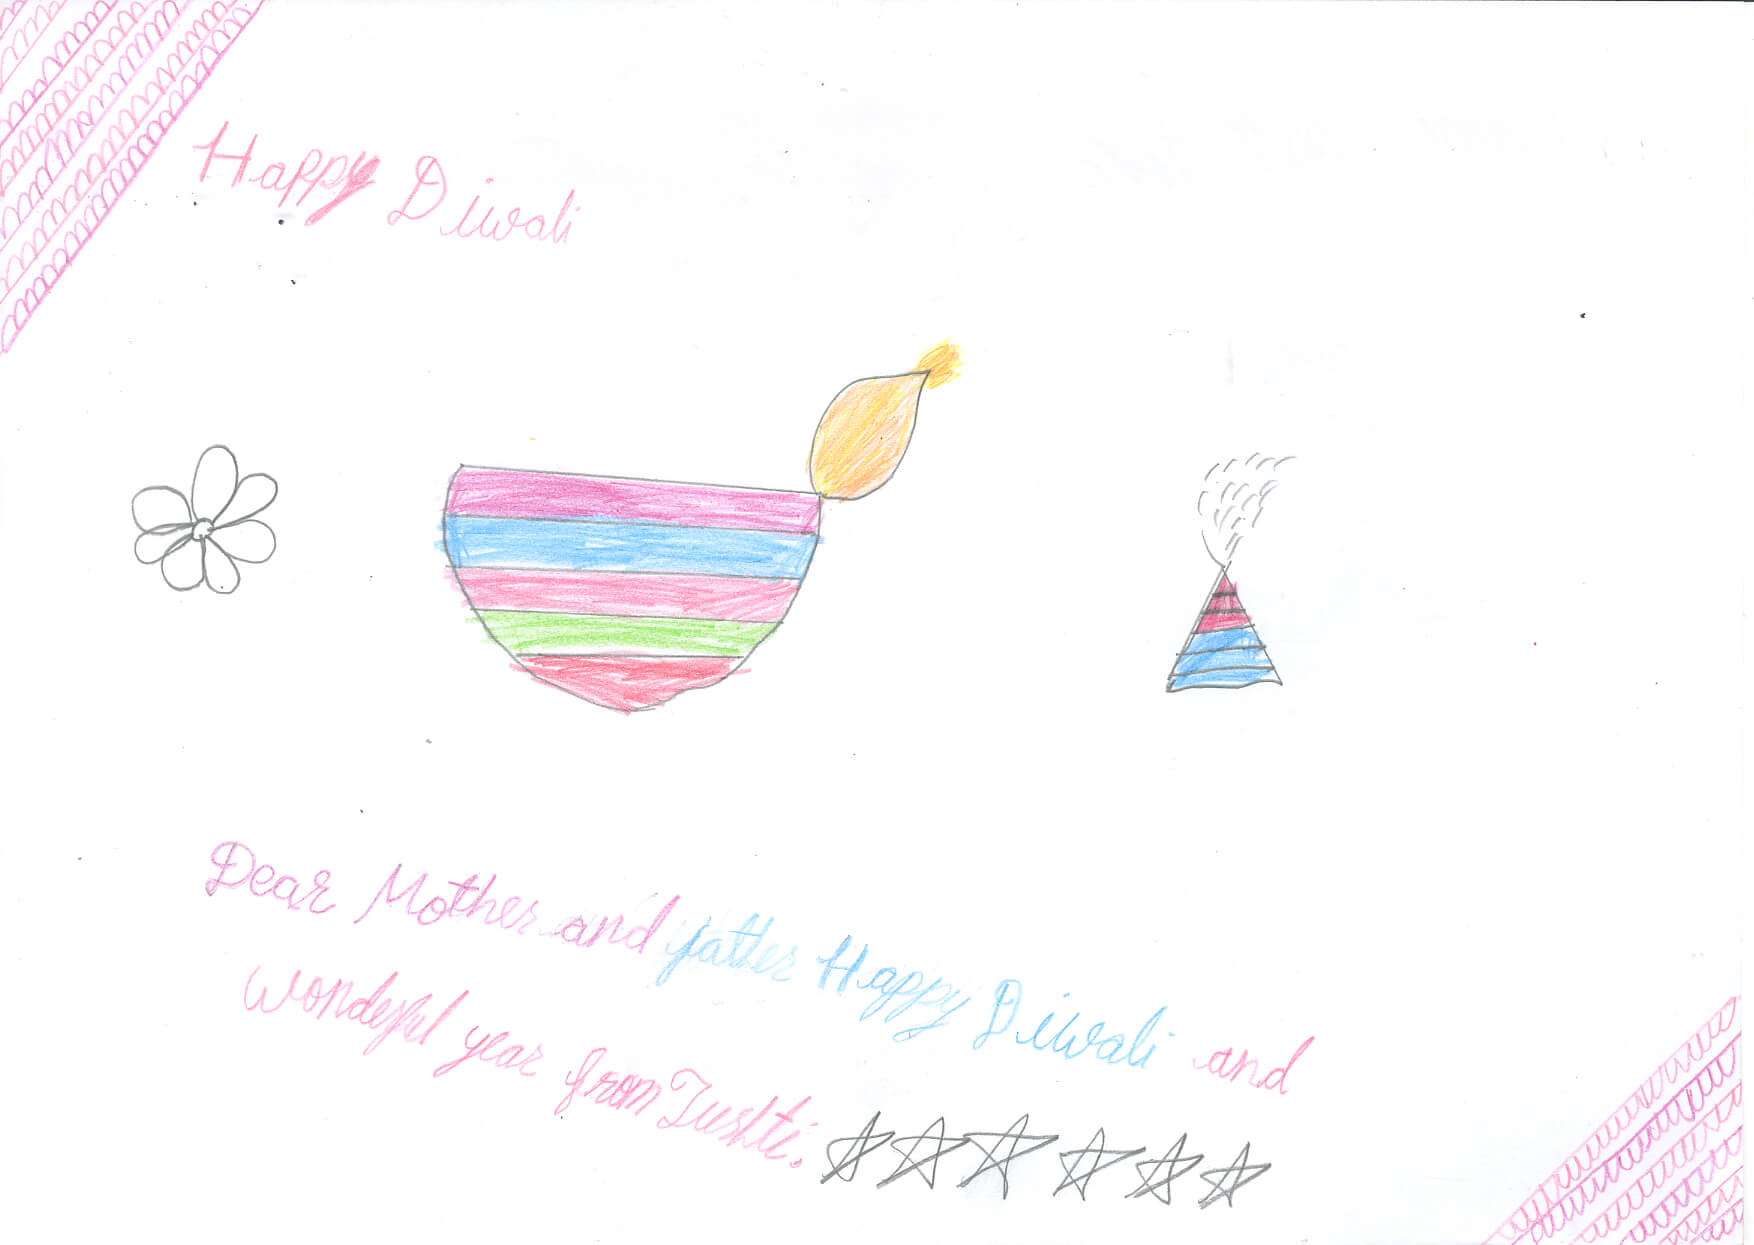 Happy Diwali
Dear Mother and father Happy Diwali and
wonderful year from Tushti.